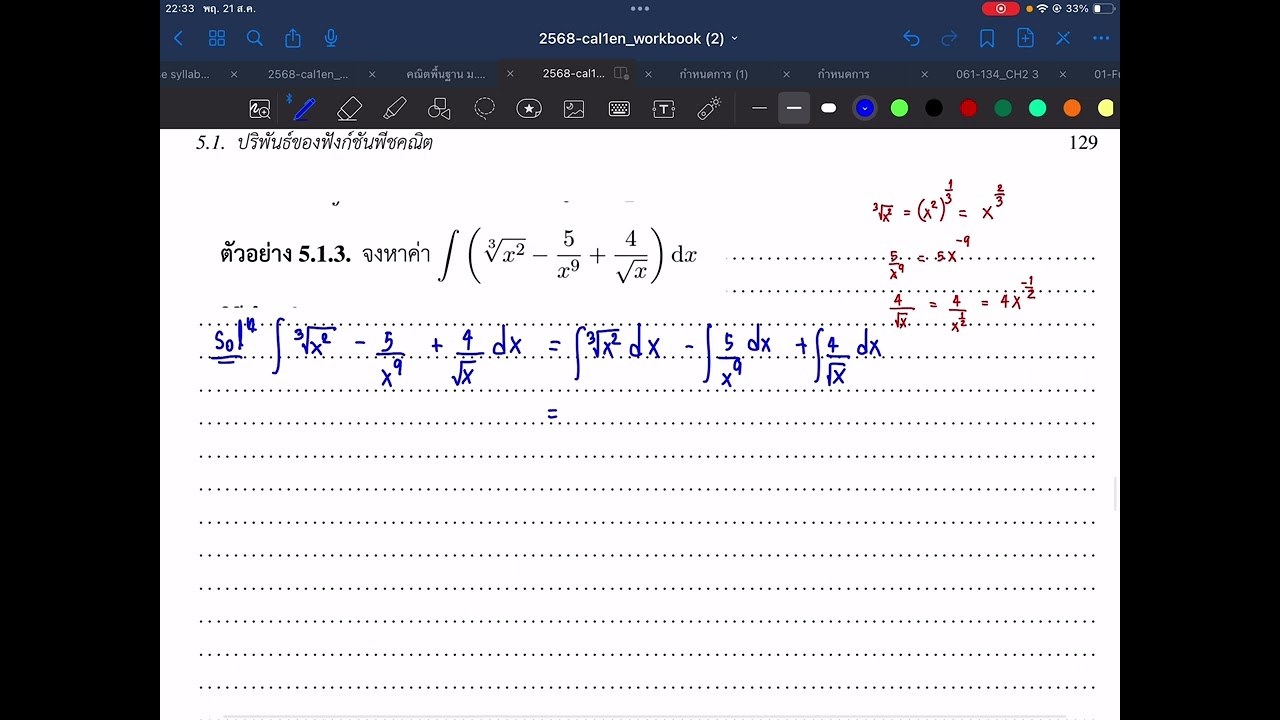 22:33 พฤ. 21 ส.ค. 33%
2568-cal1en_workbook (2)
e syllab... 2568-cal1en_... คณิตพื้นฐาน ม.... 2568-cal1... กำหนดการ (1) กำหนดการ 061-134_CH2 3 01-F
5.1. ปริพันธ์ของฟังก์ชันพีชคณิต 129
∛x² = (x²)^(1/3) = x^(2/3)
ตัวอย่าง 5.1.3. จงหาค่า ∫ (∛x² − 5/x⁹ + 4/√x) dx
5/x⁹ = 5x⁻⁹
4/√x = 4/x^(1/2) = 4x^(-1/2)
Solⁿ ∫ ∛x² − 5/x⁹ + 4/√x dx = ∫ ∛x² dx − ∫ 5/x⁹ dx + ∫ 4/√x dx
=